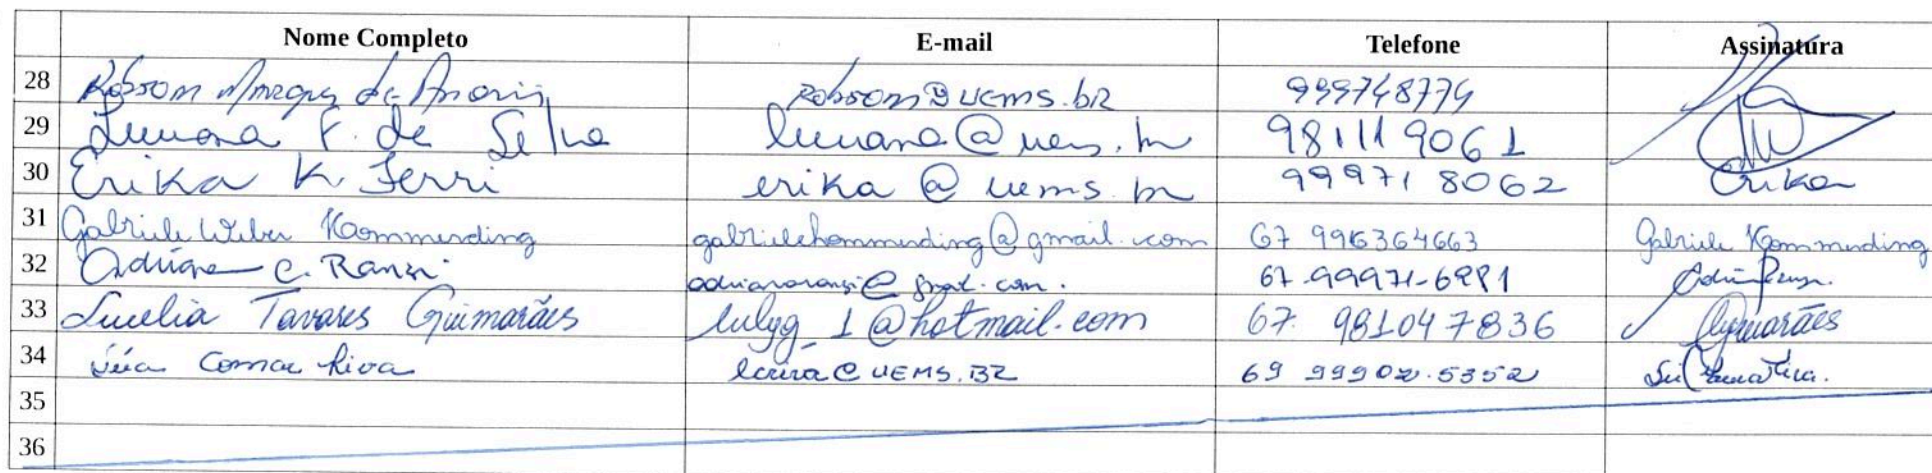 Nome Completo E-mail Telefone Assinatura
28 Robson robson@uems.br 999748774
29 F. de @ 981119061
30 Erika K. Ferri erika@uems.br 999718062 Erika
31 Gabriele Weber Kommerding gabrielekommerding@gmail.com 67 996364663 Gabriele Kommerding
32 Adriane C. Ranzi 67.99971-6981
33 Lucelia Tavares Guimarães lulyg_1@hotmail.com 67. 981047836 Guimarães
34 Riva @UEMS.BR 69 99902.5352
35
36